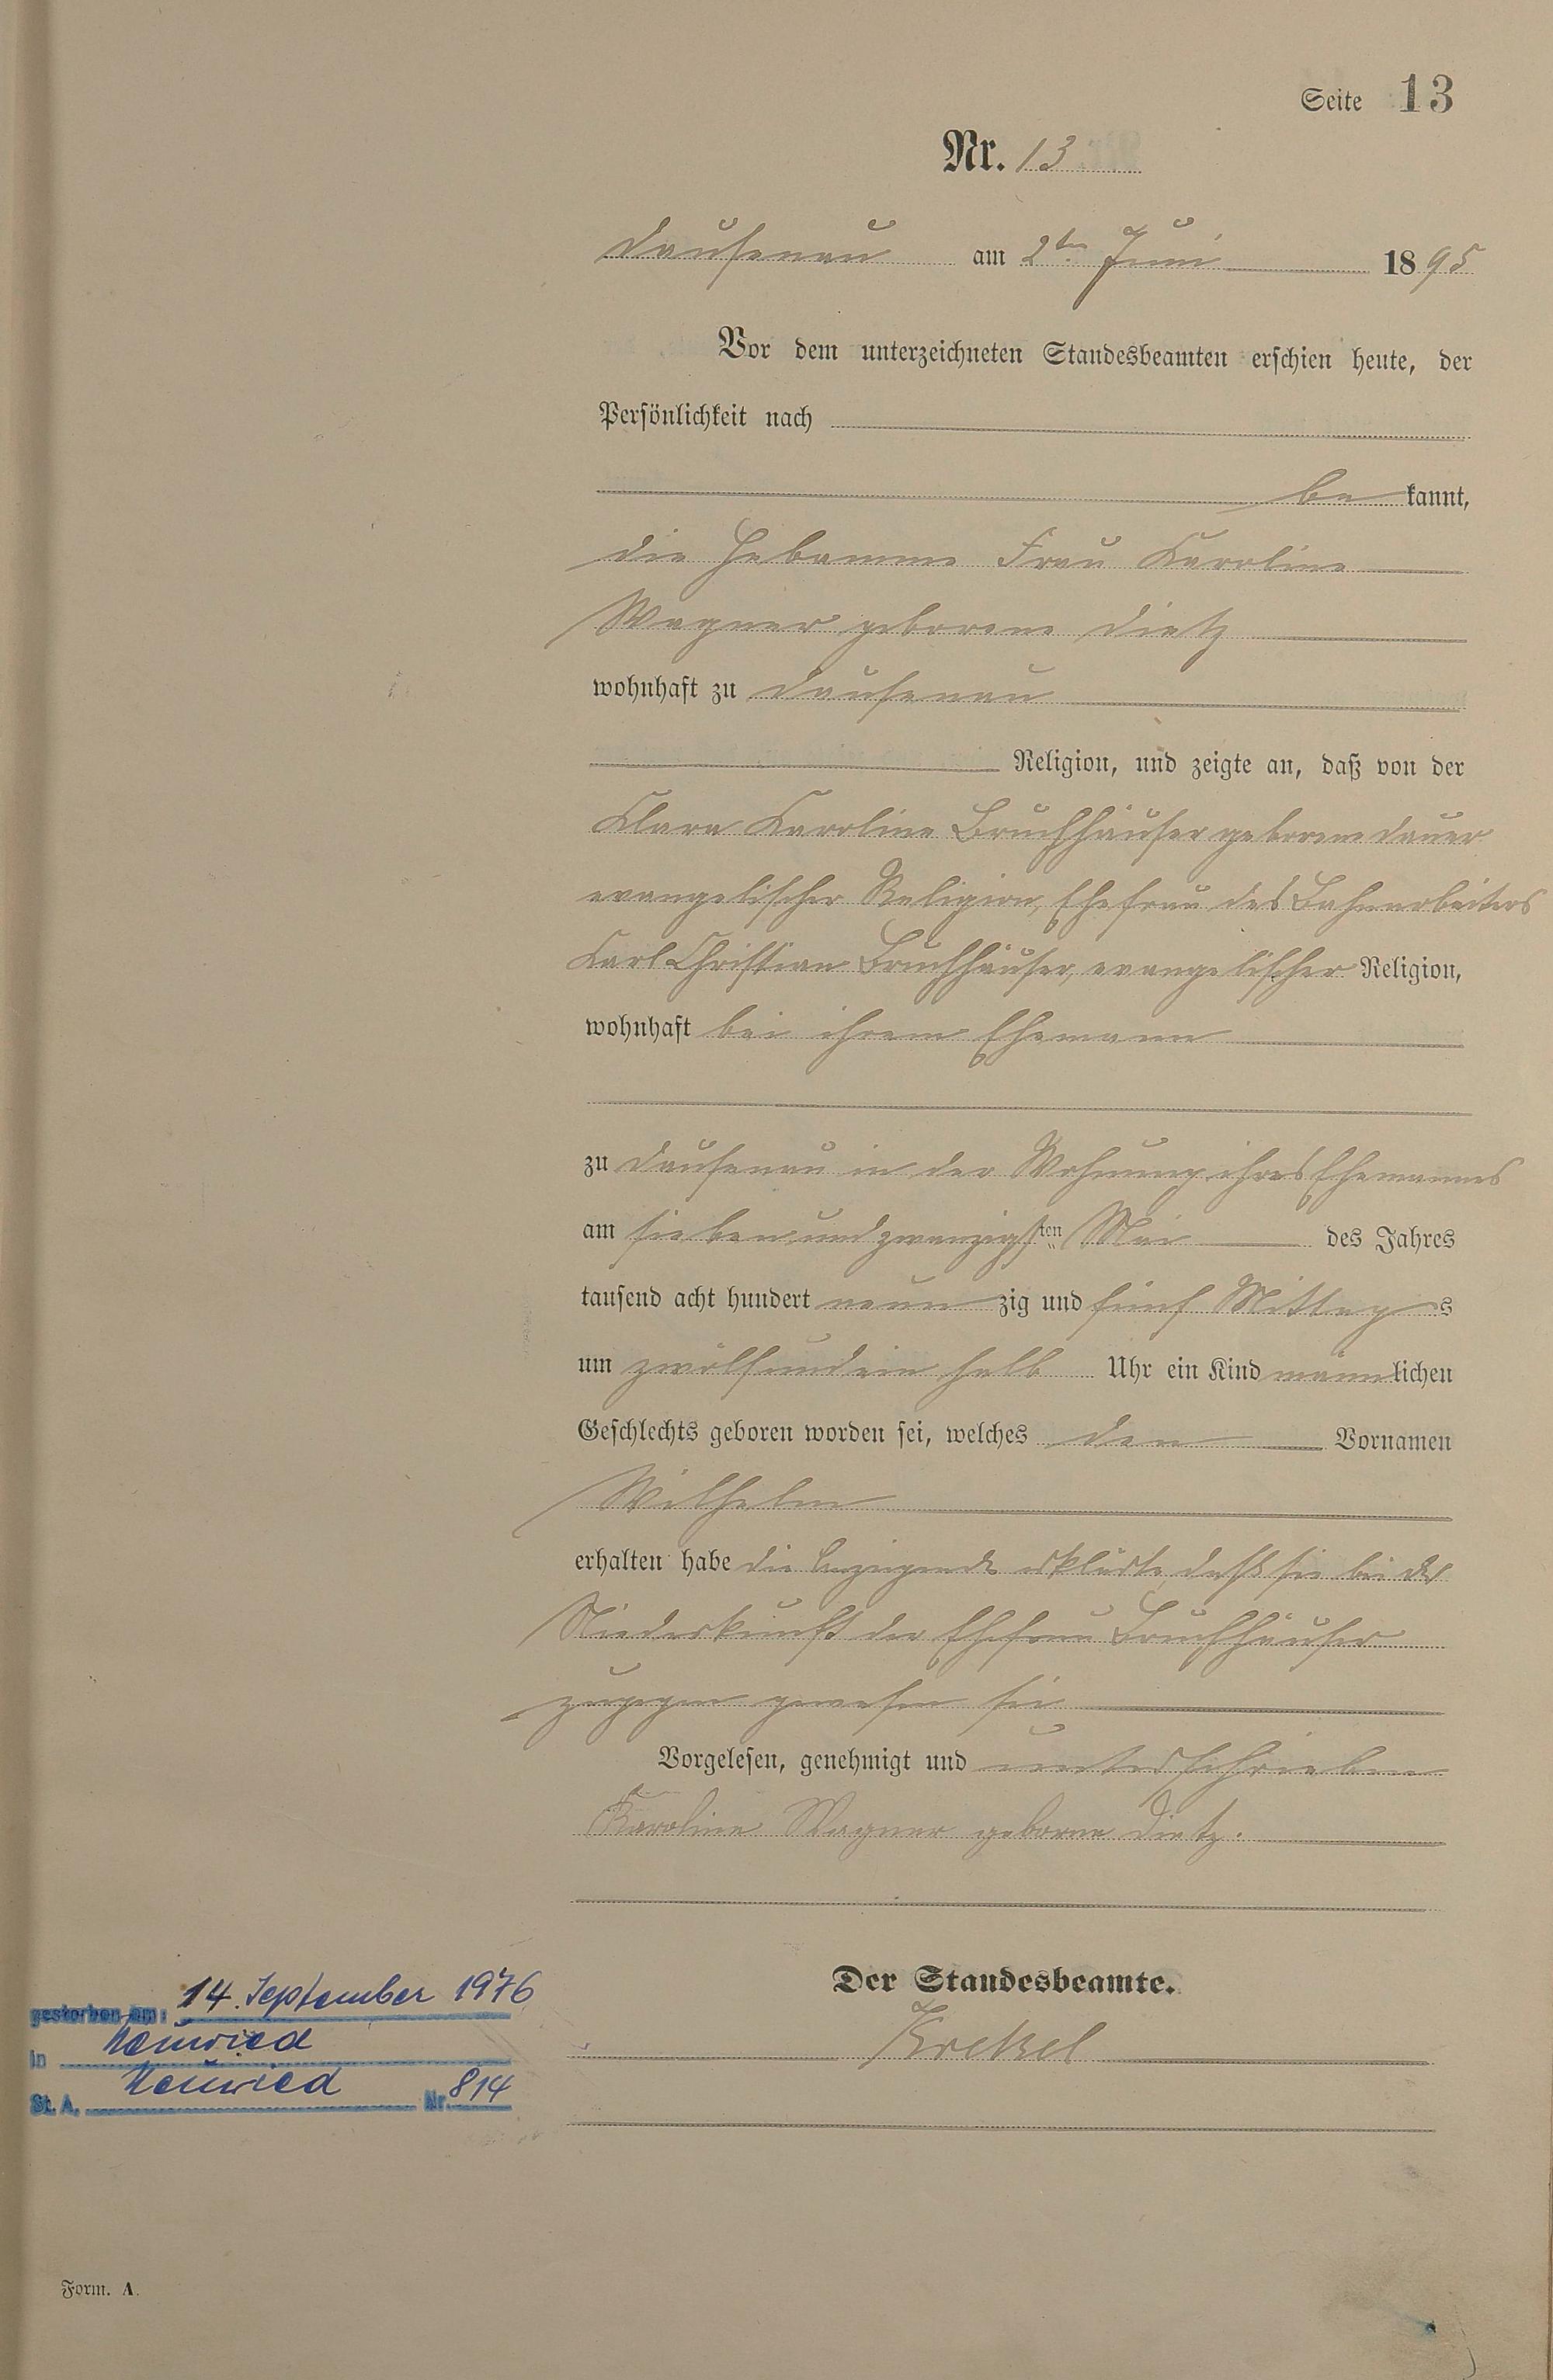 Seite 13
Nr. 13
Dausenau am 2ten Juni 1895
Vor dem unterzeichneten Standesbeamten erschien heute, der
Persönlichkeit nach
be kannt,
die Hebamme Frau Karoline
Wagner geborene Dietz
wohnhaft zu Dausenau
Religion, und zeigte an, daß von der
Clara Karoline Bruchhäuser geborene Dauer
evangelischer Religion, Ehefrau des Bahnarbeiters
Karl Christian Bruchhäuser, evangelischer Religion,
wohnhaft bei ihrem Ehemann
zu Dausenau in der Wohnung ihres Ehemannes
am sieben und zwanzigsten Mai des Jahres
tausend acht hundert neun zig und fünf Mittag s
um zwölfundein halb Uhr ein Kind männlichen
Geschlechts geboren worden sei, welches den Vornamen
Wilhelm
erhalten habe die Anzeigende erklärte, daß sie bei der
Niederkunft der Ehefrau Bruchhäuser
zugegen gewesen sei
Vorgelesen, genehmigt und unterschrieben
Karoline Wagner geborne Dietz.
Der Standesbeamte.
Krekel
gestorben am: 14. September 1976
in Neuwied
St. A. Neuwied Nr. 814
Form. A.